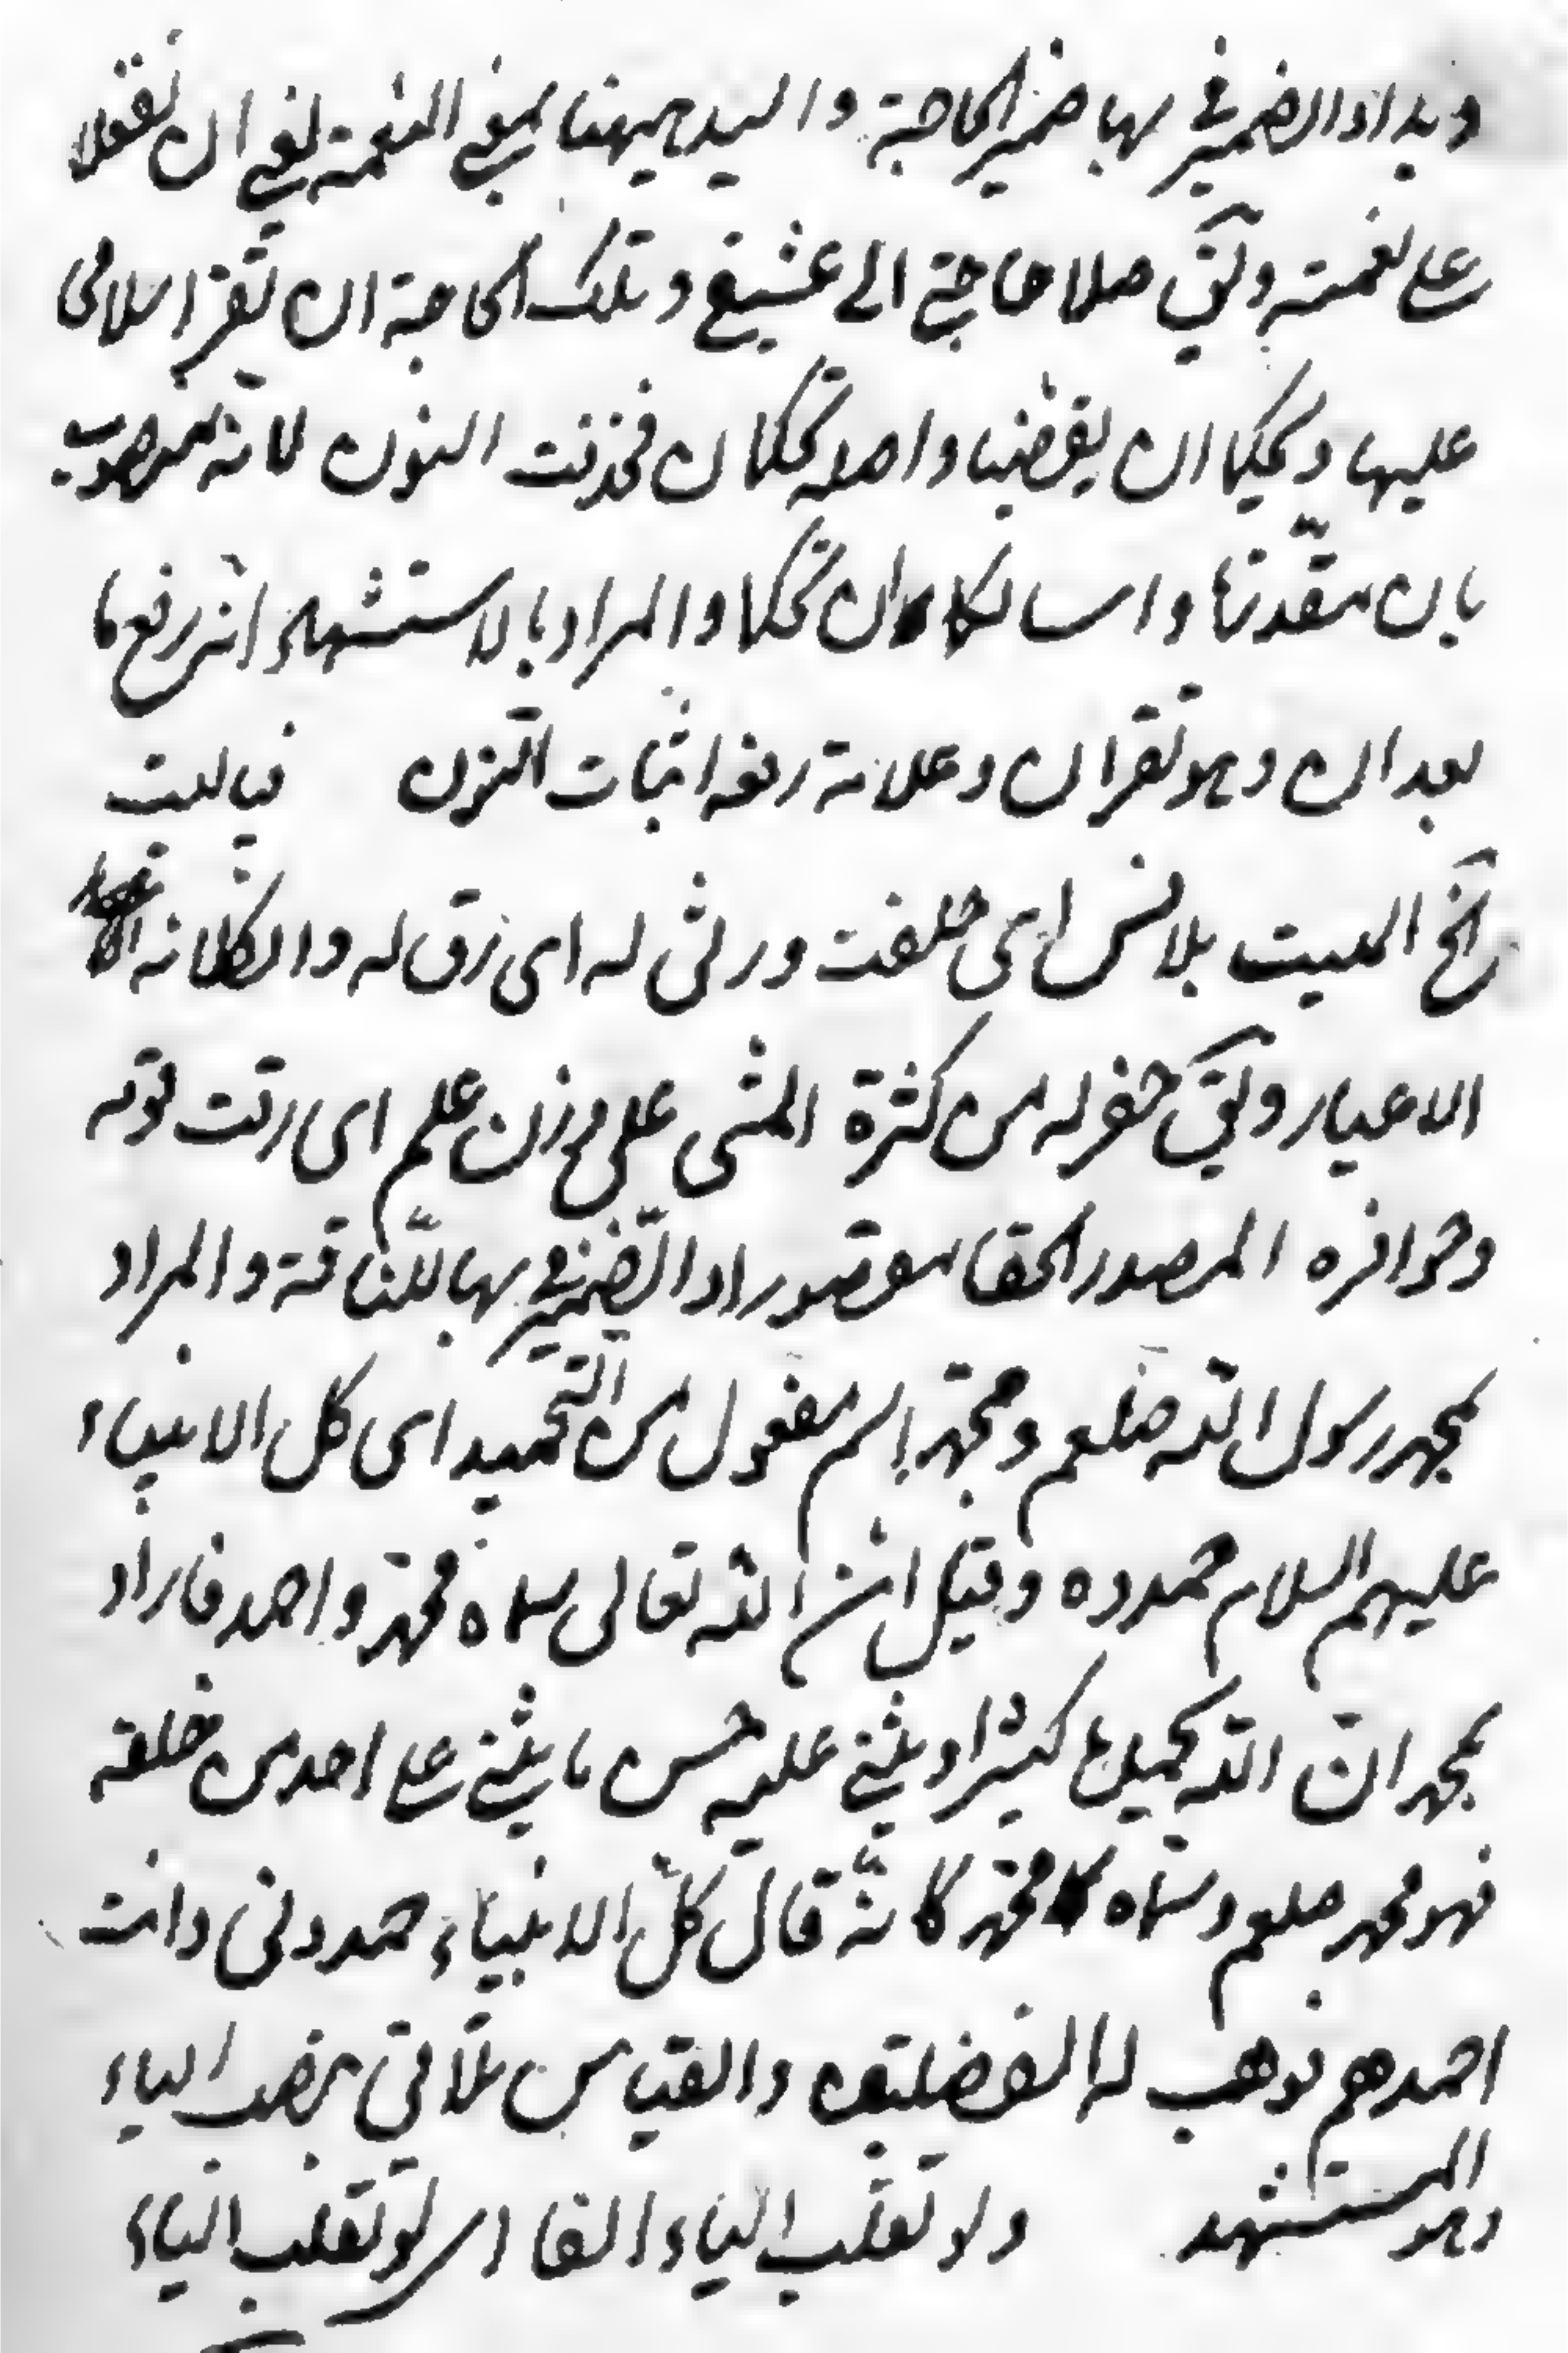 وبداو الضمير في بها ضمير الحاجة واليد ههنا بمعنى النعمة يعني ان تفعلا
على نعمة ويق حلا حاجتي الى عشيغ وتلك الحاجة ان تقرا سلامى
عليها ويحكما ان يقضيا واصله تحكمان فحذفت النون لانه منصوب
بان مقدرنا واسا لكا ان تحكما والمراد بالاستشهاد انه رفع ما
بعد ان وهو تقران وعلامة رفعه اثبات النون فياليت
رنخ الميت بلانس اى خلفت ورثى له اى رق له والكلانه
الاعيار ويق حفر له من كثرة المشى على وزن علم اى رقت قوته
وحوافره المصدر الحقا مقصور او الضمير في بها للناقة والمراد
بمحمد رسول الله صلعم ومحمد اسم مفعول من التحميد اى كل الانبياء
عليهم السلام حمدوه وقيل ان الله تعالى سماه محمد واحمد فاراد
بمحمد ان الله يحمده كثيرا ويثني عليه حسن ما يثني على احد من خلقه
فهو محمد صلعم وسماه محمد كانه قال كل الانبياء حمدونى وانت
احمدهم فوهب له الفضليتين والقياس تلاقي بنصب الياء
وهو المستشهد ولا تقلب الياء الفا اى لو تقلب الياء